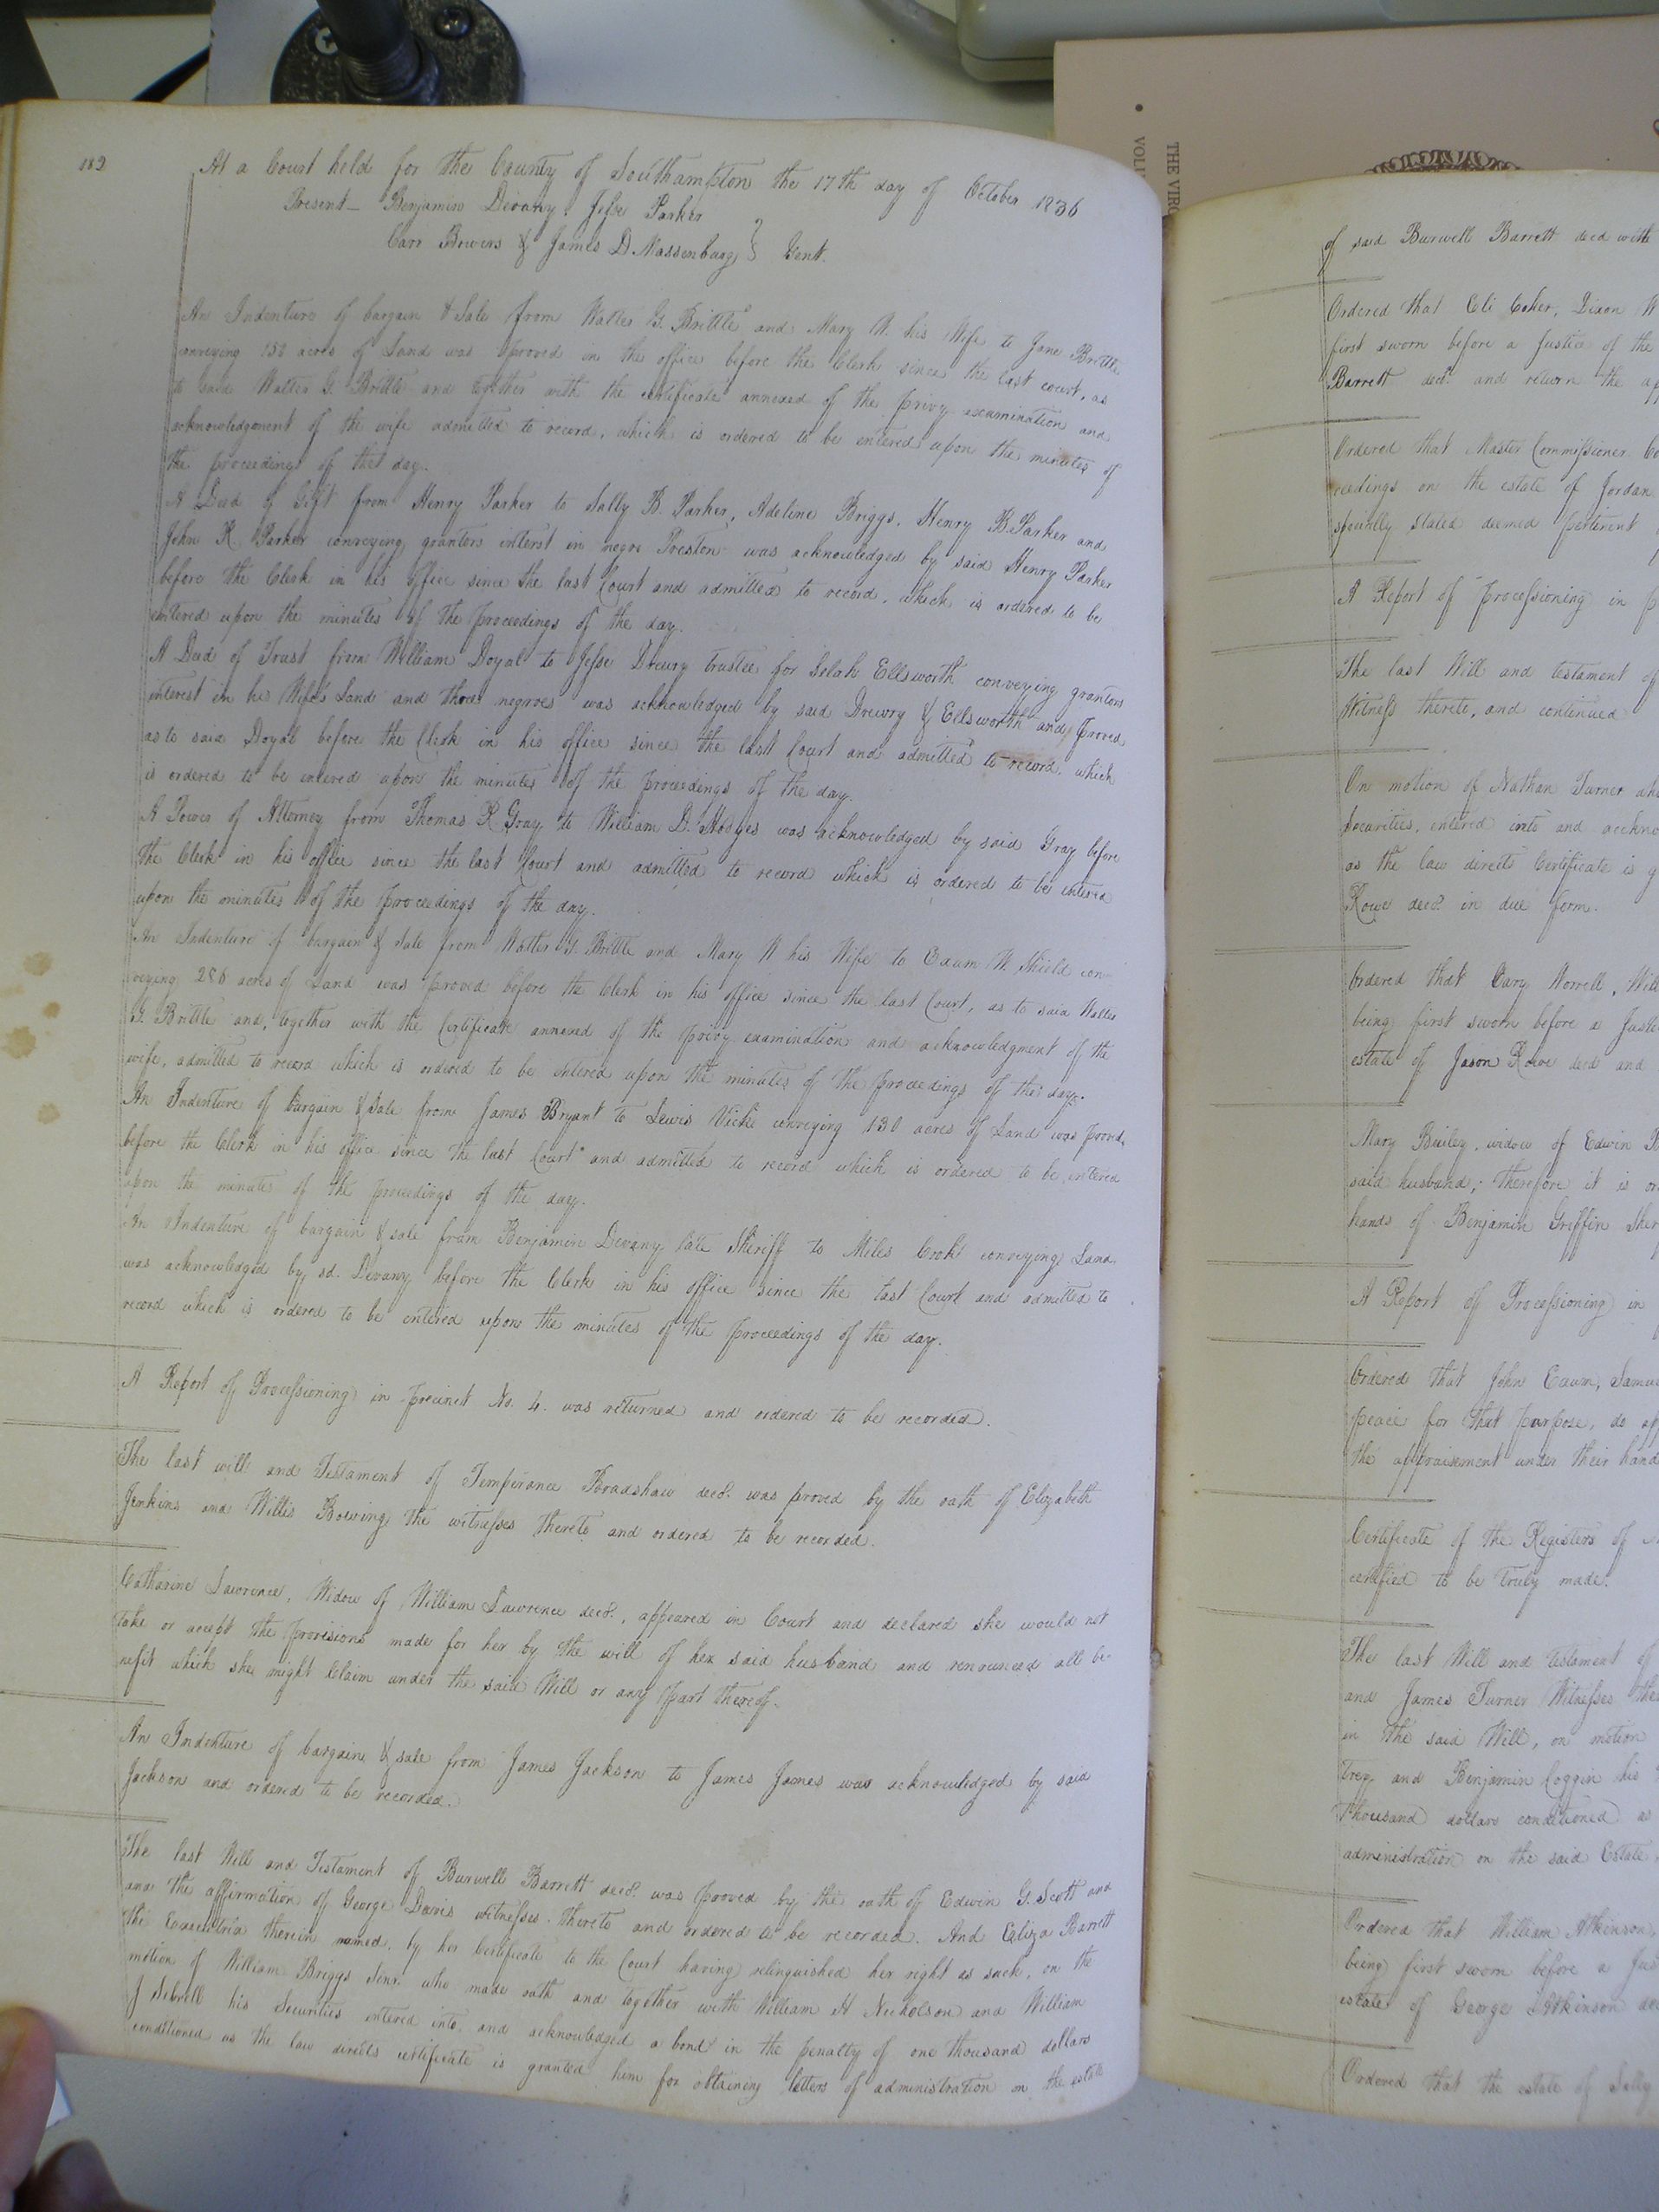 182
At a Court held for the County of Southampton the 17th day of October 1836
Present — Benjamin Devany, Jesse Parker
Carr Bowers & James D Massenburg } Gent.
An Indenture of bargain & Sale from Walter G. Brittle and Mary W. his Wife to Jane Brittle
conveying 158 acres of Land was proved in the office before the Clerk since the last court, as
to said Walter G. Brittle and together with the certificate annexed of the privy examination and
acknowledgement of the wife admitted to record, which is ordered to be entered upon the minutes of
the proceedings of the day.
A Deed of Gift from Henry Parker to Sally B. Parker, Adeline Briggs, Henry B. Parker and
John R. Parker conveying grantors interst in negro Preston was acknowledged by said Henry Parker
before the Clerk in his office since the last Court and admitted to record, which is ordered to be
entered upon the minutes of the proceedings of the day.
A Deed of Trust from William Doyal to Jesse Drewry trustee for Selah Ellsworth conveying grantors
interest in his Wife's Land and three negroes was acknowledged by said Drewry & Ellsworth and proved
as to said Doyal before the Clerk in his office since the last Court and admitted to record, which
is ordered to be entered upon the minutes of the proceedings of the day.
A Power of Attorney from Thomas R Gray to William D. Hodges was acknowledged by said Gray before
the Clerk in his office since the last Court and admitted to record which is ordered to be entered
upon the minutes of the proceedings of the day.
An Indenture of bargain & sale from Walter G. Brittle and Mary W his Wife to Exum W. Shield con-
veying 256 acres of Land was proved before the Clerk in his office since the last Court, as to said Walter
G. Brittle and, together with the Certificate annexed of the privy examination and acknowledgment of the
wife, admitted to record which is ordered to be entered upon the minutes of the proceedings of the day.
An Indenture of bargain & Sale from James Bryant to Lewis Vick conveying 130 acres of Land was proved
before the Clerk in his office since the last Court and admitted to record which is ordered to be entered
upon the minutes of the proceedings of the day.
An Indenture of bargain & sale from Benjamin Devany late Sheriff to Miles Cook conveying Land
was acknowledged by sd. Devany before the Clerk in his office since the last Court and admitted to
record which is ordered to be entered upon the minutes of the proceedings of the day.
A Report of Processioning in precinct No. 4. was returned and ordered to be recorded.
The last will and Testament of Temperance Bradshaw decd. was proved by the oath of Elizabeth
Jenkins and Willis Bowing the witnesses thereto and ordered to be recorded.
Catharine Lawrence, Widow of William Lawrence decd., appeared in Court and declared she would not
take or accept the provisions made for her by the will of her said husband and renounced all be-
nefit which she might claim under the said Will or any part thereof.
An Indenture of bargain & sale from James Jackson to James James was acknowledged by said
Jackson and ordered to be recorded.
The last Will and Testament of Burwell Barrett decd. was proved by the oath of Edwin G. Scott and
and the affirmation of George Davis witnesses thereto and ordered to be recorded. And Eliza Barrett
the Executrix therein named, by her Certificate to the Court having relinquished her right as such, on the
motion of William Briggs Senr. who made oath and together with William H Nicholson and William
J Sebrell his Securities entered into and acknowledged a bond in the penalty of one thousand dollars
conditioned as the law directs certificate is granted him for obtaining letters of administration on the estate
THE VIRG
VOLU
of said Burwell Barrett decd with
Ordered that Eli Coker, Dixon W
first sworn before a Justice of the
Barrett decd. and return the ap
Ordered that Master Commissioner Co
ceedings on the estate of Jordan
specially stated deemed pertinent
A Report of Processioning in p
The last Will and testament of
Witness thereto, and continued
On motion of Nathan Turner who
Securities, entered into and ackno
as the law directs Certificate is g
Rowe decd. in due form.
Ordered that Cary Worrell, Will
being first sworn before a Justi
estate of Jason Rowe decd and
Mary Bailey, widow of Edwin B
said husband; therefore it is or
hands of Benjamin Griffin Sher
A Report of Processioning in
Ordered that John Exum, Samu
peace for that purpose, do ap
the appraisement under their hand
Certificate of the Registers of
certified to be truly made.
The last Will and testament of
and James Turner Witnesses the
in the said Will, on motion
Trey and Benjamin Coggin his
thousand dollars conditioned a
administration on the said Estate
Ordered that William Atkinson,
being first sworn before a Jus
estate of George Atkinson de
Ordered that the estate of Sally